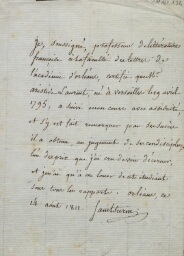 Je, soussigné, professeur de littérature
française à la faculté des lettres de
l'académie d'orléans, certifie que Mr.
Laurent, né à Versailles le 29 avril
1795, a suivi mon cours avec assiduité,
et s'y est fait remarquer par
il a obtenu, au jugement de ses condisciples,
que j'ai cru devoir
et je n'ai qu'à me louer de cet étudiant
sous tous les rapports. orléans, ce
14 août 1812.